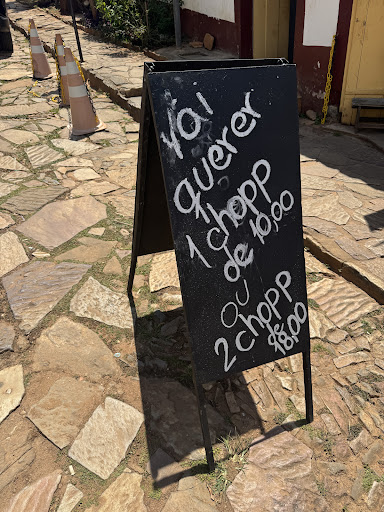 vai
querer
1 chopp
de 10,00
ou
2 chopp
de 18,00